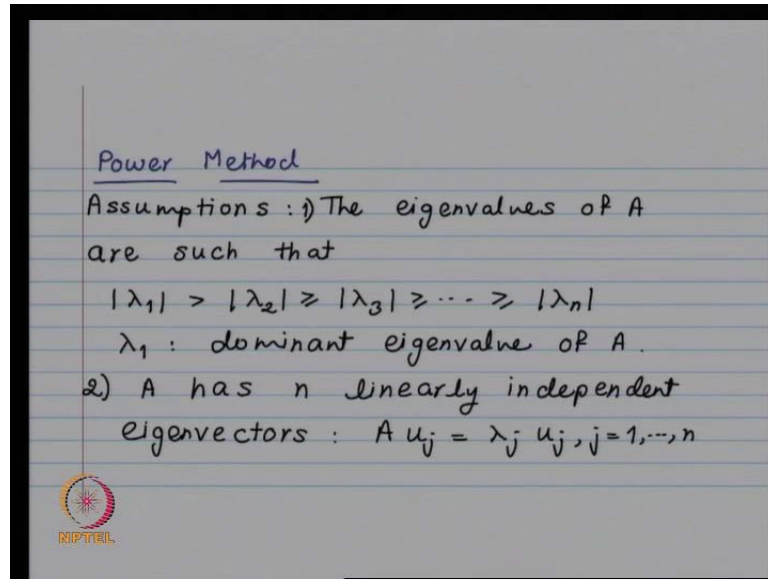 Power Method
Assumptions : 1) The eigenvalues of A
are such that
|λ1| > |λ2| ≥ |λ3| ≥ ... ≥ |λn|
λ1 : dominant eigenvalue of A.
2) A has n linearly independent
eigenvectors : A uj = λj uj, j = 1,...,n
NPTEL